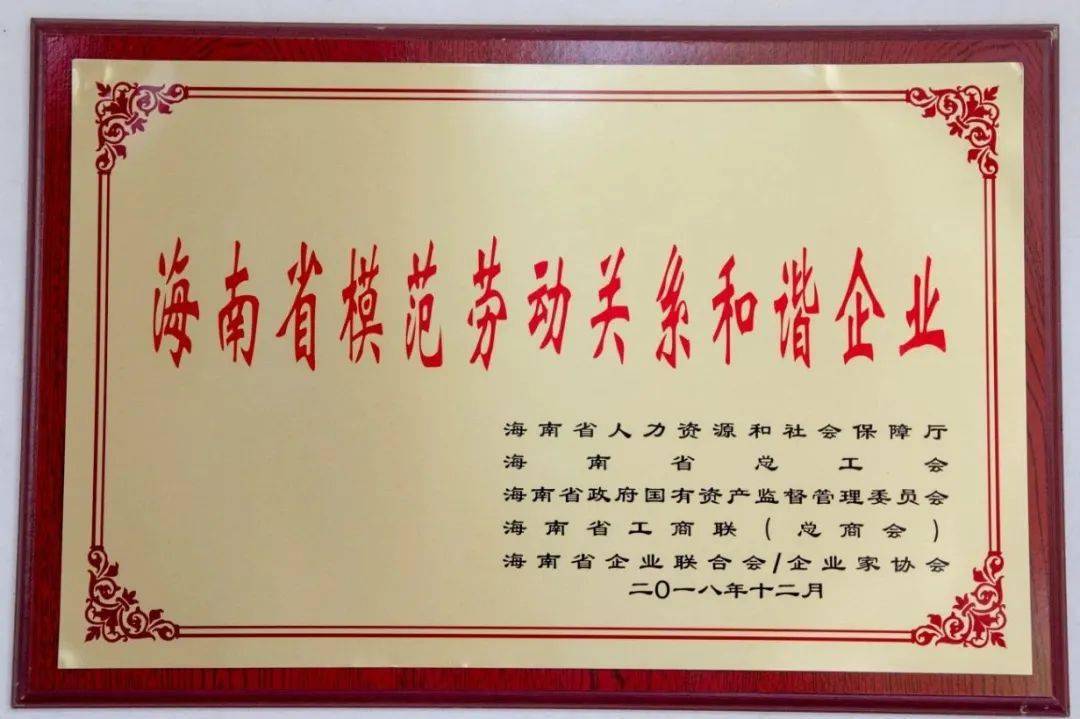 海南省模范劳动关系和谐企业
海南省人力资源和社会保障厅
海南省总工会
海南省政府国有资产监督管理委员会
海南省工商联(总商会)
海南省企业联合会/企业家协会
二0一八年十二月